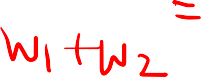 w₁+w₂ =